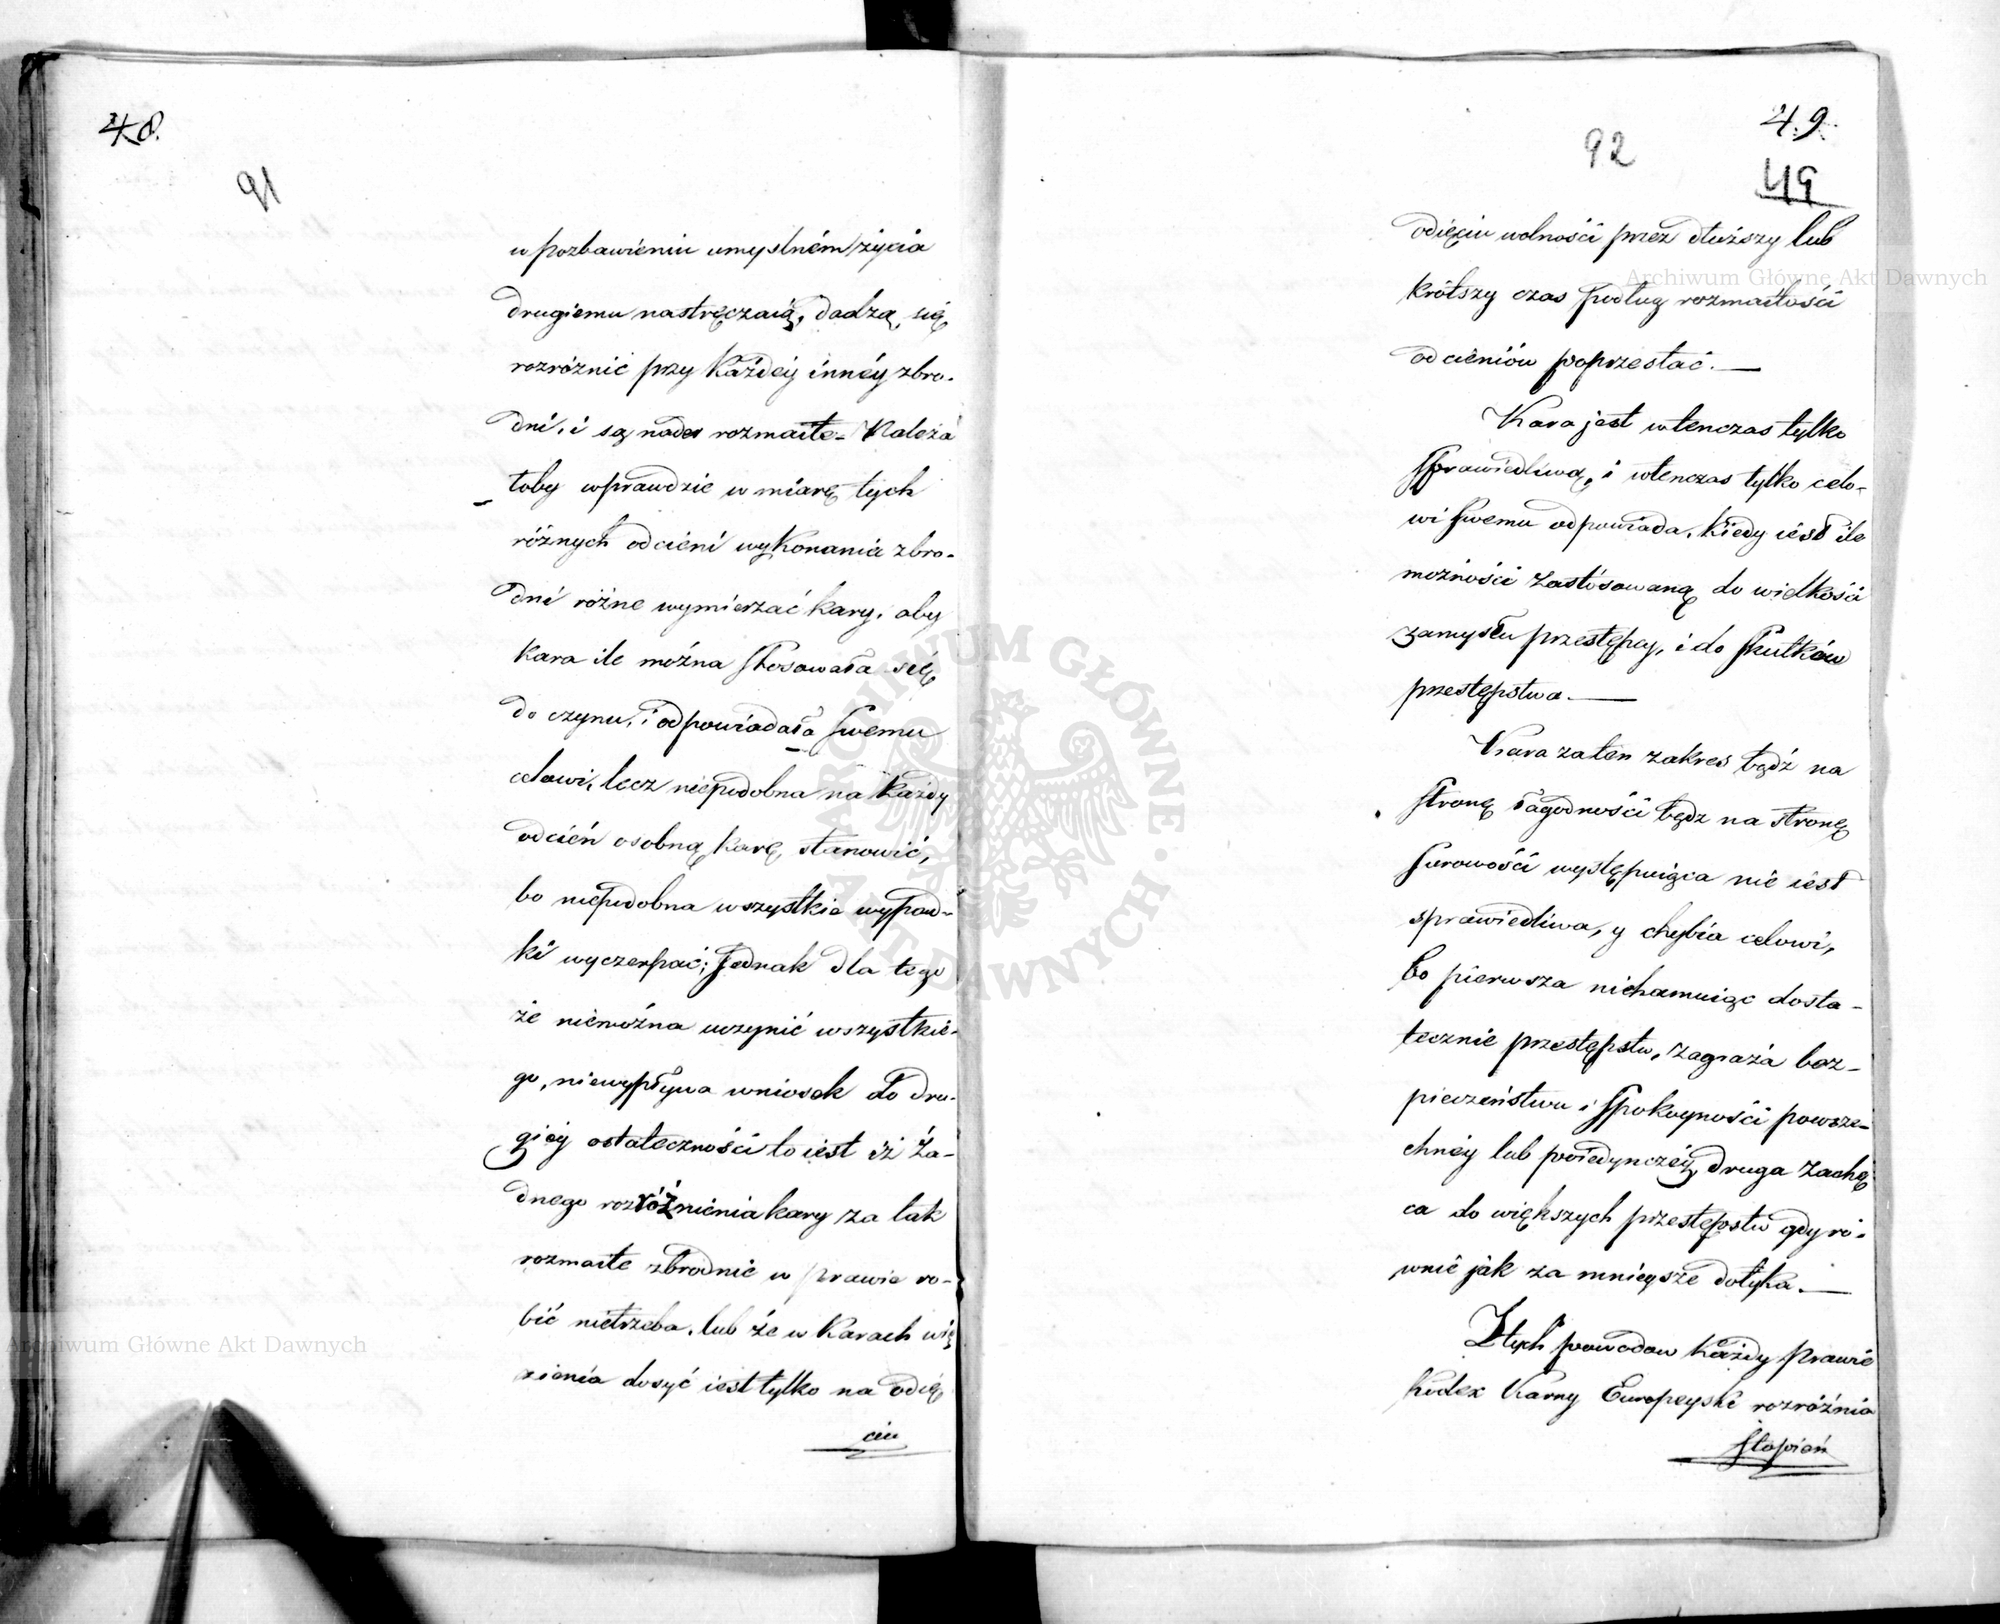 48.
91
w pozbawieniu umyslném życia
drugiemu nastręczaią, dadzą się
rozróżnić przy każdéy innéy zbro-
dni, i są nader rozmaite. Należa
łoby wprawdzie w miarę tych
różnych odcieni wykonania zbro-
dni różne wymierzać kary, aby
kara ile można stosowała się
do czynu, i odpowiadała swemu
celowi, lecz niepodobna na każdy
odcień osobną karę stanowić,
bo niepodobna wszystkie wypad-
ki wyczerpać; jednak dla tego
że niemożna uczynić wszystkie-
go, niewypływa wniosek do dru-
giéy ostateczności to iest iż ża-
dnego rozróżnienia kary za tak
rozmaite zbrodnie w prawie ro-
bić nietrzeba, lub że w karach wię
zienia dosyć iest tylko na odię
ciu
49.
92
49
odięciu wolności przez dłuższy lub
krótszy czas podług rozmaitości
odcieniów poprzestać. —
Kara jest wtenczas tylko
sprawiedliwą, i wtenczas tylko celo-
wi swemu odpowiada, kiedy iest ile
możności zastósowaną do wielkości
zamysłu przestępcy, i do skutków
przestępstwa. —
Kara za ten zakres bądź na
stronę łagodności bądz na stronę
surowości występuiąca nie iest
sprawiedliwa, y chybia celowi,
bo pierwsza niehamuiąc dosta-
tecznie przestępstw, zagraża bez-
pieczeństwu i spokoyności powsze-
chnéy lub poiedynczéy, druga zachę
ca do większych przestępstw gdy ró-
wnie jak za mnieysze dotyka. —
Z tych powodow każdy prawie
kodex karny Europeyski rozróżnia
stopień
Archiwum Główne Akt Dawnych
Archiwum Główne Akt Dawnych
ARCHIWUM GŁÓWNE AKT DAWNYCH